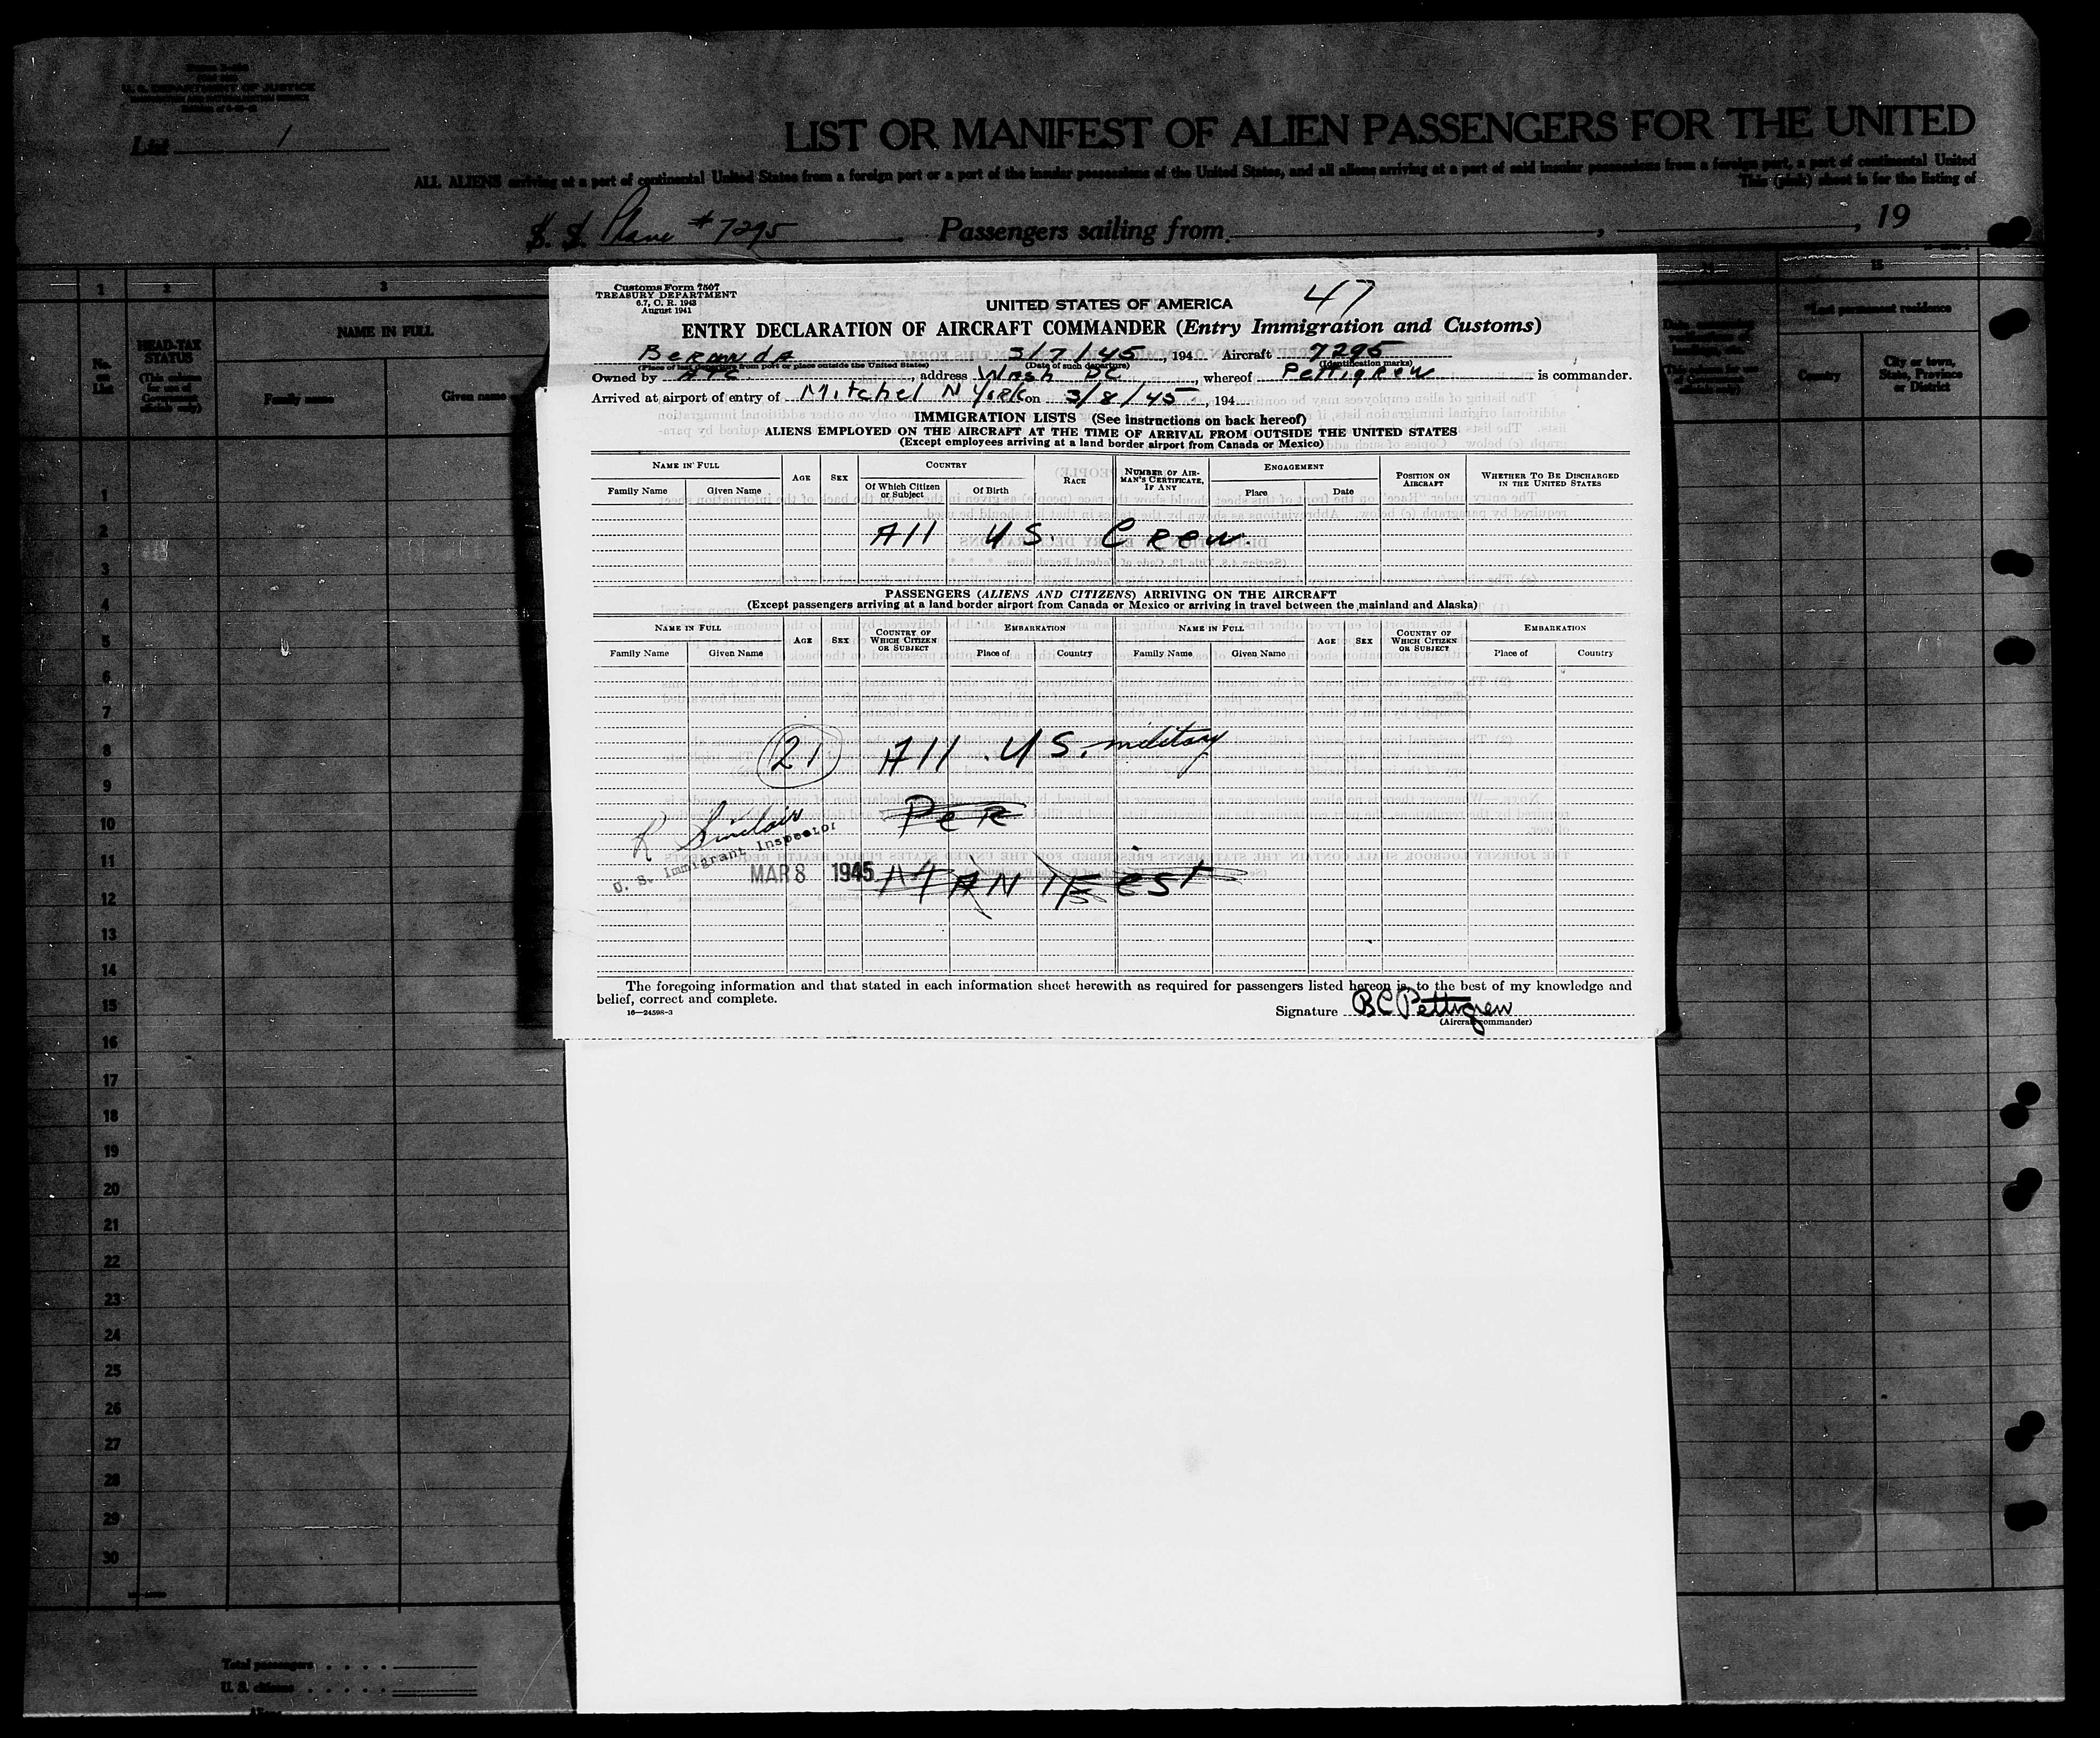 U. S. DEPARTMENT OF JUSTICE
List 1
LIST OR MANIFEST OF ALIEN PASSENGERS FOR THE UNITED
ALL ALIENS arriving at a port of continental United States from a foreign port or a port of the insular possessions of the United States, and all aliens arriving at a port of said insular possessions from a foreign port, a port of continental United
This (pink) sheet is for the listing of
S. S. Plane #7295 Passengers sailing from , , 19
1 2 3 15
No. on List
HEAD-TAX STATUS
(This column for use of Government officials only)
NAME IN FULL
Family name Given name
*Last permanent residence
Country
City or town, State, Province or District
Customs Form 7507
TREASURY DEPARTMENT
6.7, C. R. 1943
August 1941
UNITED STATES OF AMERICA
47
ENTRY DECLARATION OF AIRCRAFT COMMANDER (Entry Immigration and Customs)
Bermuda 3/7/45, 194 Aircraft 7295
(Place of last departure from port or place outside the United States) (Date of such departure) (Identification marks)
Owned by ATC, address Wash DC, whereof Pettigrew is commander.
Arrived at airport of entry of Mitchel N York on 3/8/45, 194
IMMIGRATION LISTS (See instructions on back hereof)
ALIENS EMPLOYED ON THE AIRCRAFT AT THE TIME OF ARRIVAL FROM OUTSIDE THE UNITED STATES
(Except employees arriving at a land border airport from Canada or Mexico)
NAME IN FULL AGE SEX COUNTRY RACE NUMBER OF AIRMAN'S CERTIFICATE, IF ANY ENGAGEMENT POSITION ON AIRCRAFT WHETHER TO BE DISCHARGED IN THE UNITED STATES
Family Name Given Name Of Which Citizen or Subject Of Birth Place Date
All US. Crew
PASSENGERS (ALIENS AND CITIZENS) ARRIVING ON THE AIRCRAFT
(Except passengers arriving at a land border airport from Canada or Mexico or arriving in travel between the mainland and Alaska)
NAME IN FULL AGE SEX COUNTRY OF WHICH CITIZEN OR SUBJECT EMBARKATION NAME IN FULL AGE SEX COUNTRY OF WHICH CITIZEN OR SUBJECT EMBARKATION
Family Name Given Name Place of Country Family Name Given Name Place of Country
21 All U S. military
Per
Manifest
R Sinclair
U. S. Immigrant Inspector
MAR 8 1945
The foregoing information and that stated in each information sheet herewith as required for passengers listed hereon is, to the best of my knowledge and
belief, correct and complete.
16—24598-3
Signature BC Pettigrew
(Aircraft commander)
1
2
3
4
5
6
7
8
9
10
11
12
13
14
15
16
17
18
19
20
21
22
23
24
25
26
27
28
29
30
Total passengers
U. S. citizens